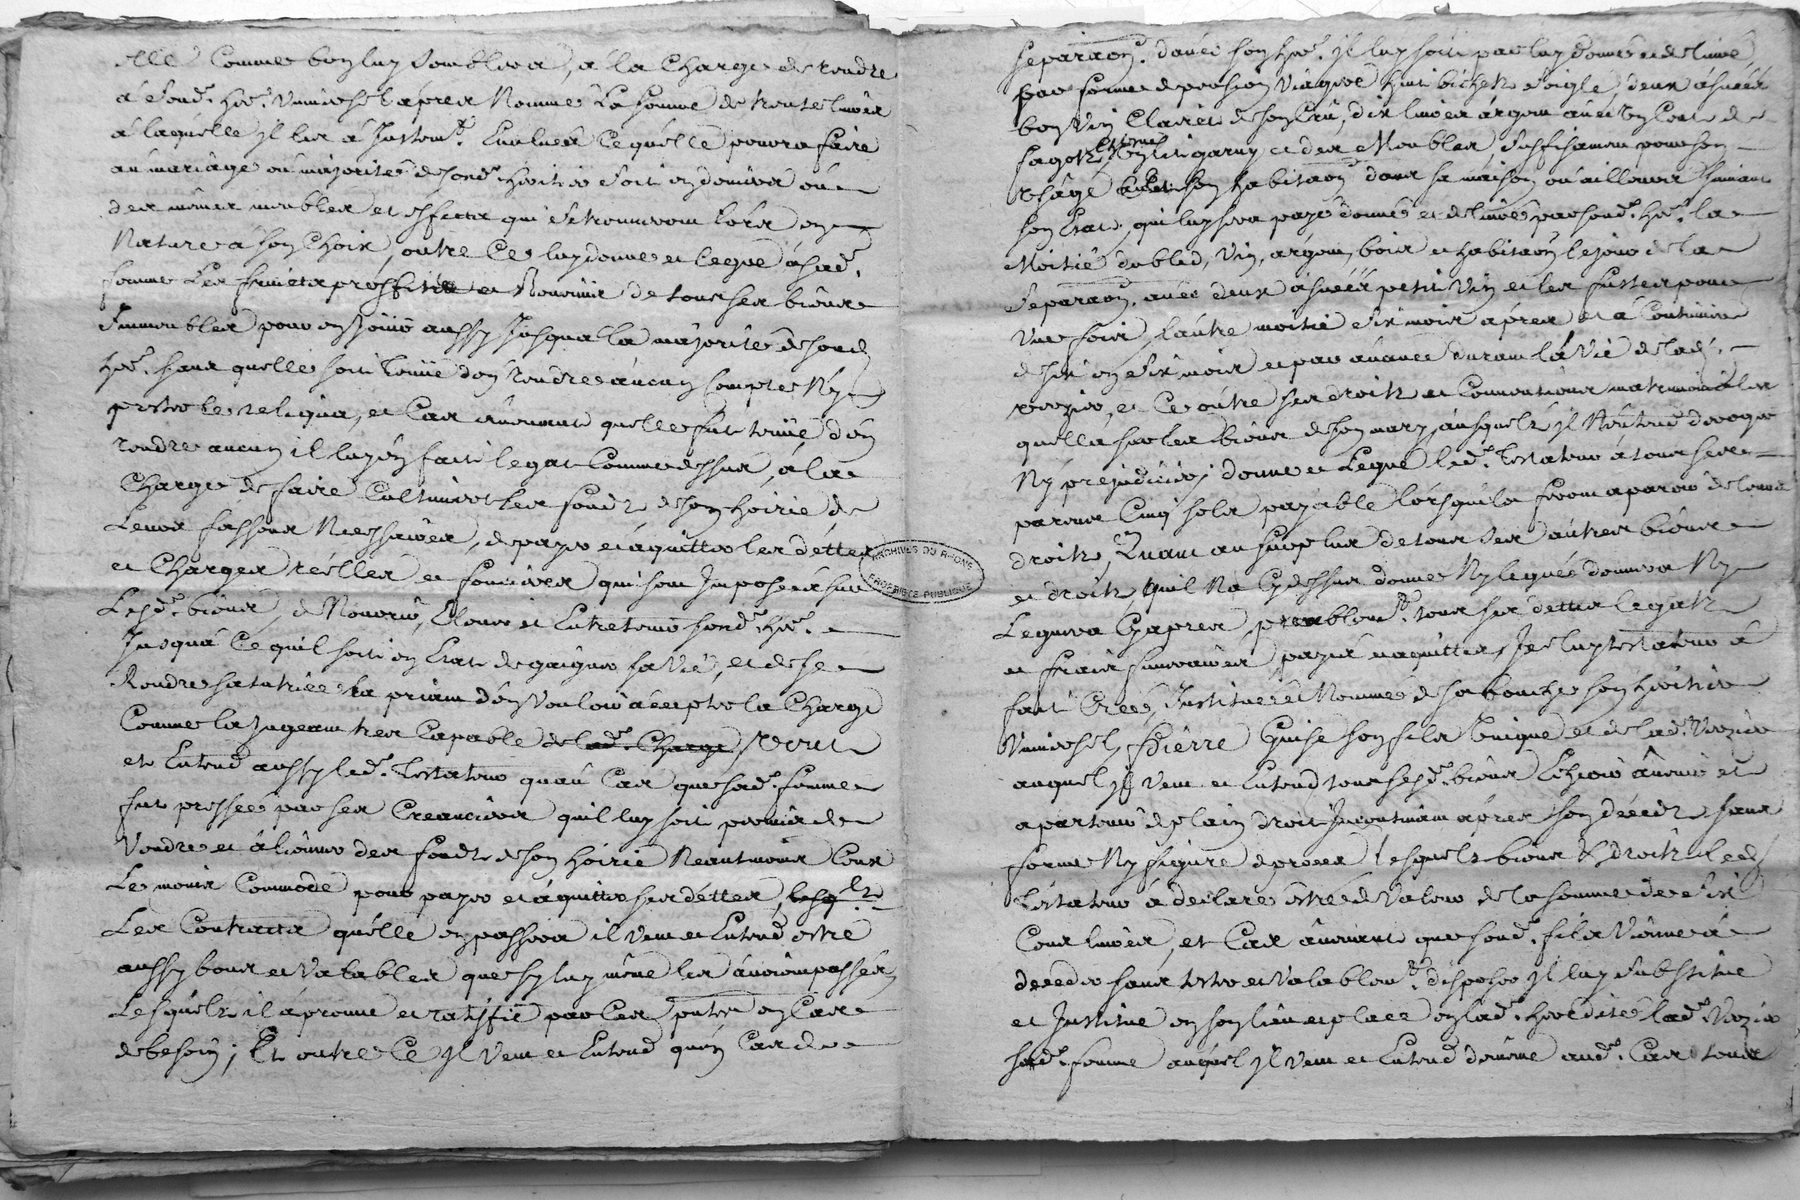 elle comme bon luy semblera, a la charge de rendre
a sond. her. universel aprez nommé la somme de trente livres
a laquelle il les a Justem.t Evaluez ce quelle pourra faire
au mariage ou majorité de sond. heritier soit en deniers ou
des mêmes meubles et effectz qui se trouveront lors en
Nature a son choix, outre ce luy donne et legue a sad.
femme Les fruictz proffitz et Revenus de tous ses biens
Immeubles pour en Jouir aussy Jusqua la majorité de sond.
her. sans quelle soit tenue d'en rendre aucun compte Ny
prester le reliqua, et Cas avenant quelle fut tenue d'en
rendre aucun il luy en fait legat comme dessus, a la
Charge de faire cultiver les fondz de son hoirie de
Leurs fassons Necessaires, de payer et aquitter les dettes
et Charges réelles et foncieres qui sont Imposées sur
Lesd. biens, de Nourrir, Elever et Entretenir sond. her.
Jusqua ce quil soit en Etat de gaigner sa vie, et de se
Rendre la priant d'en vouloir accepter la Charge
Comme la Jugeant tres Capable de lad. Charge, veut
et Entend aussy led. Testateur quau Cas que sad. femme
fut pressee par ses Creanciers quil luy soit permis de
Vendre et aliener des fondz de son hoirie Neantmoins
Le moins commode pour payer et aquitter ses dettes,
Les Contractz quelle en passera il veut et Entend estre
aussy bons et valables que sy luy même les avoient passés
Lesquelz il aprouve et ratiffie par ces pntes en Cas
de besoin; Et outre ce Il veut et Entend quen Cas de
separaon. davec son her. Il luy soit par luy donné et delivré
par forme de pension viagere huit bichetz seigle, deux asnées
bon vin Clairet de son cru, dix livres argent avec un cent de
fagotz, un lit garny et des Meubles suffisament pour son
usage et son habitaon dans sa maison ou ailleurs suivant
son Etat, qui luy sera payé donné et delivré par sond. her. la
Moitié du bled, vin, argent, bois et habitaon le jour de la
separaon, avec deux asnées petit vin et les fustes pour
une fois, lautre moitié six mois aprez et a Continuer
de six en six mois et par avance durant la vie de lad.
et ce outre ses droitz et Conventions matrimoniales
quelle a sur les biens de son mary, ausquelz il N'entend deroger
Ny prejudicier; donne et Legue led. testateur a tous ses
parens cinq solz payable lorsquilz feront aparoir de leurs
droitz, Quant au surplus de tous ses autres biens
et droitz quil Na Cydessus donné Ny legués donnera Ny
Leguera Cyaprez, tous ses dettes legatz
et fraix funeraires payés et aquittés, Icelluy testateur a
fait Créé Institué et Nommé de sa bouche son heritier
Universel, Pierre Guise son filz Unique et de lad.
auquel Il veut et Entend tous sesd. biens Echeoir avenir et
apartenir de plain droit Incontinant aprez son décedz sans
forme Ny figure de procez lesquelz biens & droitz led.
Testateur a declaré estre de Valeur de la somme de six
Cent livres, et Cas avenant que sond. filz Vienne a
deceder sans tester et valablem.t disposer Il luy substitue
et Institue en son lieu et place en lad. heredité lad.
sad. femme auquel Il veut et Entend de même aud. Cas tous
ARCHIVES DU RHONE
PROPRIETE PUBLIQUE